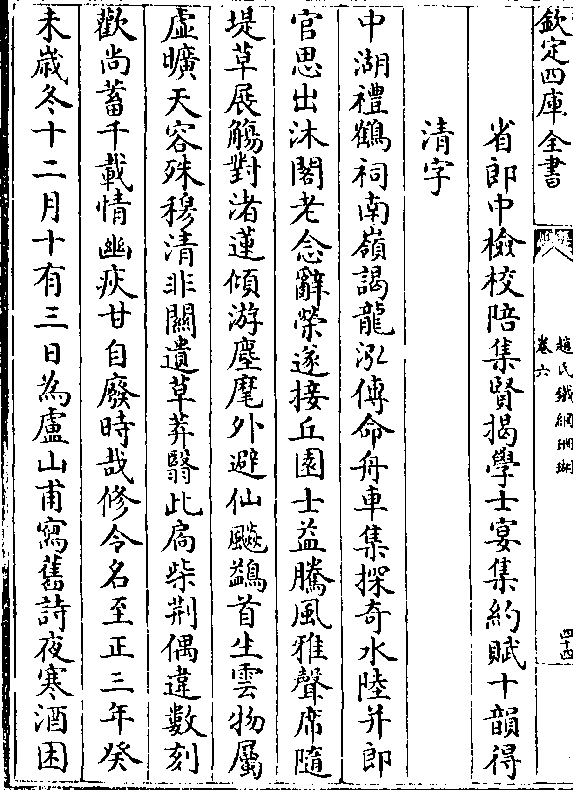 欽定四庫全書
趙氏鐵網珊瑚
卷六
四十四
省郎中檢校陪集賢揭學士宴集約賦十韻得
清字
中湖禮鶴祠南嶺謁龍泓傳命舟車集探奇水陸并郎
官思出沐閣老念辭榮遂接丘園士益騰風雅聲席隨
堤草展觴對渚蓮傾游塵麾外避仙飈鷁首生雲物屬
虛曠天容殊穆清非關遺草莽翳此扃柴荆偶違數刻
歡尚蓄千載情幽疾甘自廢時哉修令名至正三年癸
未歲冬十二月十有三日為盧山甫寫舊詩夜寒酒困